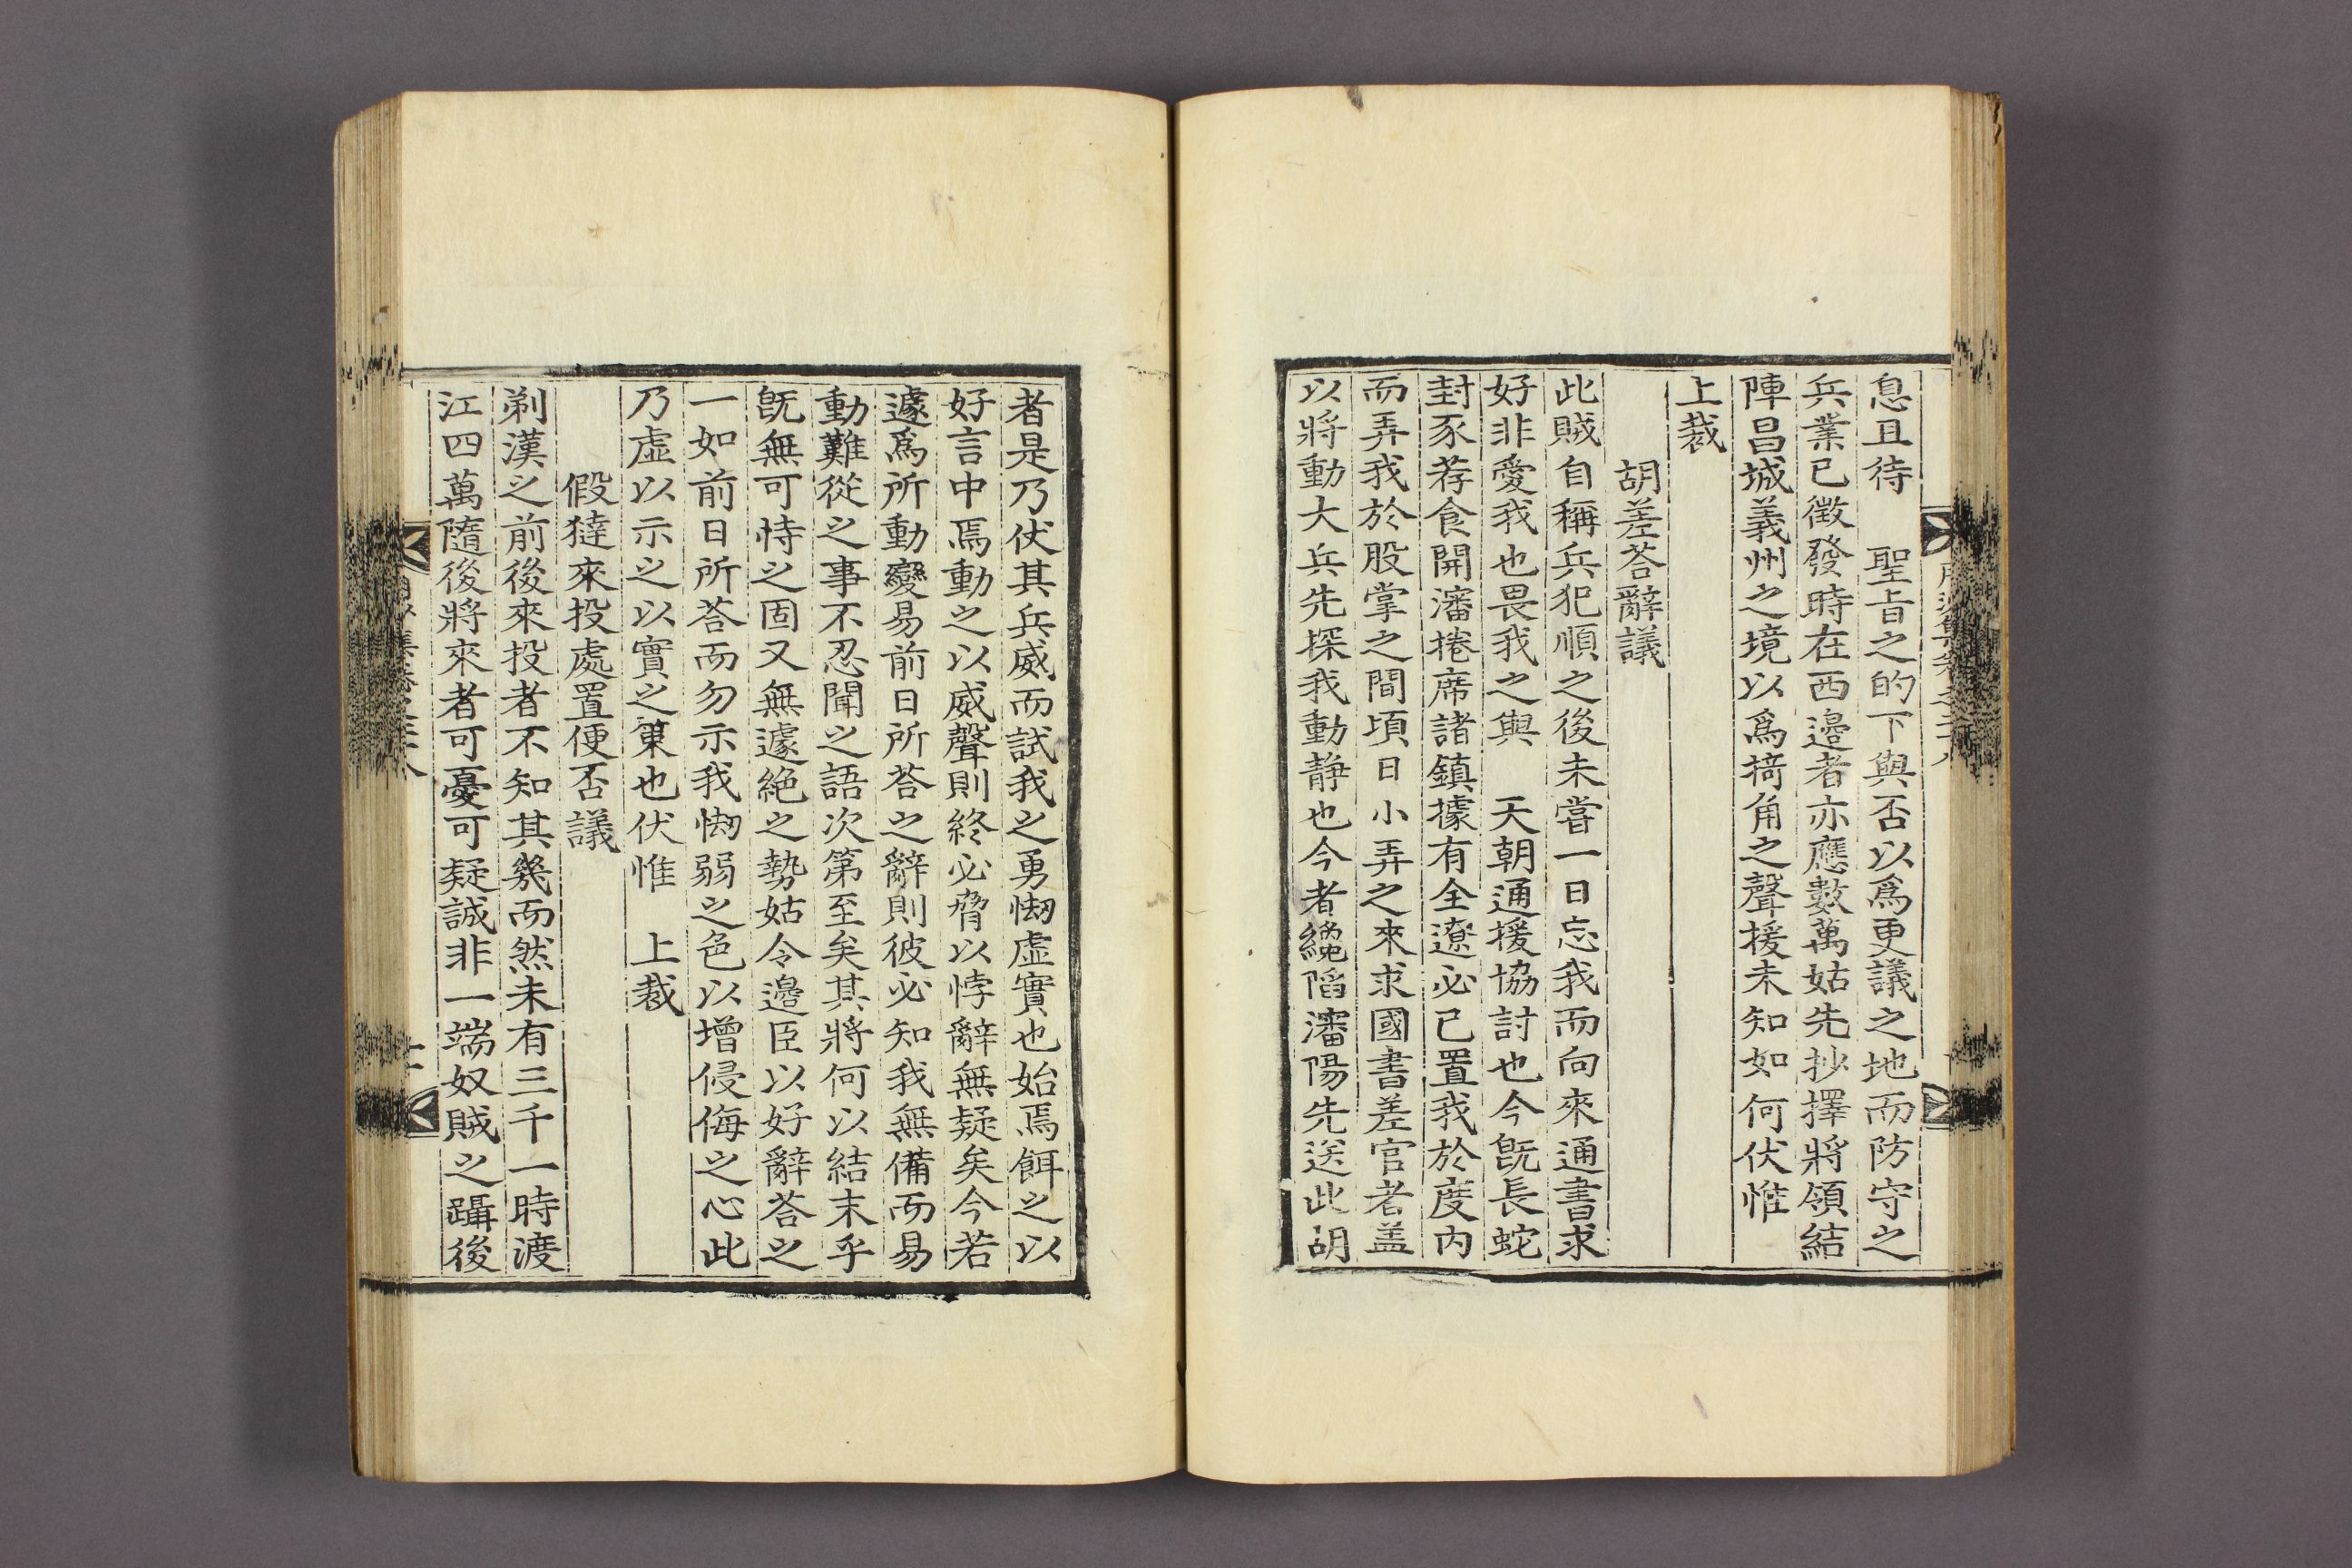 息且待　聖旨之的下與否以爲更議之地而防守之
兵業已徵發時在西邉者亦應數萬姑先抄擇將領結
陣昌城義州之境以爲掎角之聲援未知如何伏惟
上裁
胡差荅辭議
此賊自稱兵犯順之後未嘗一日忘我而向來通書求
好非愛我也畏我之與　天朝通援協討也今旣長蛇
封豕荐食開瀋捲席諸鎮據有全遼必已置我於度内
而弄我於股掌之間頃日小弄之來求國書差官者盖
以將動大兵先探我動静也今者纔陷瀋陽先送此胡
者是乃伏其兵威而試我之勇㤼虚實也始焉餌之以
好言中焉動之以威聲則終必脅以悖辭無疑矣今若
遽爲所動變易前日所荅之辭則彼必知我無備而易
動難從之事不忍聞之語次第至矣其將何以結末乎
旣無可恃之固又無遽絶之勢姑令邉臣以好辭荅之
一如前日所荅而勿示我㤼弱之色以增侵侮之心此
乃虚以示之以實之策也伏惟　上裁
假㺚來投處置便否議
剃漢之前後來投者不知其幾而然未有三千一時渡
江四萬隨後將來者可憂可疑誠非一端奴賊之躡後